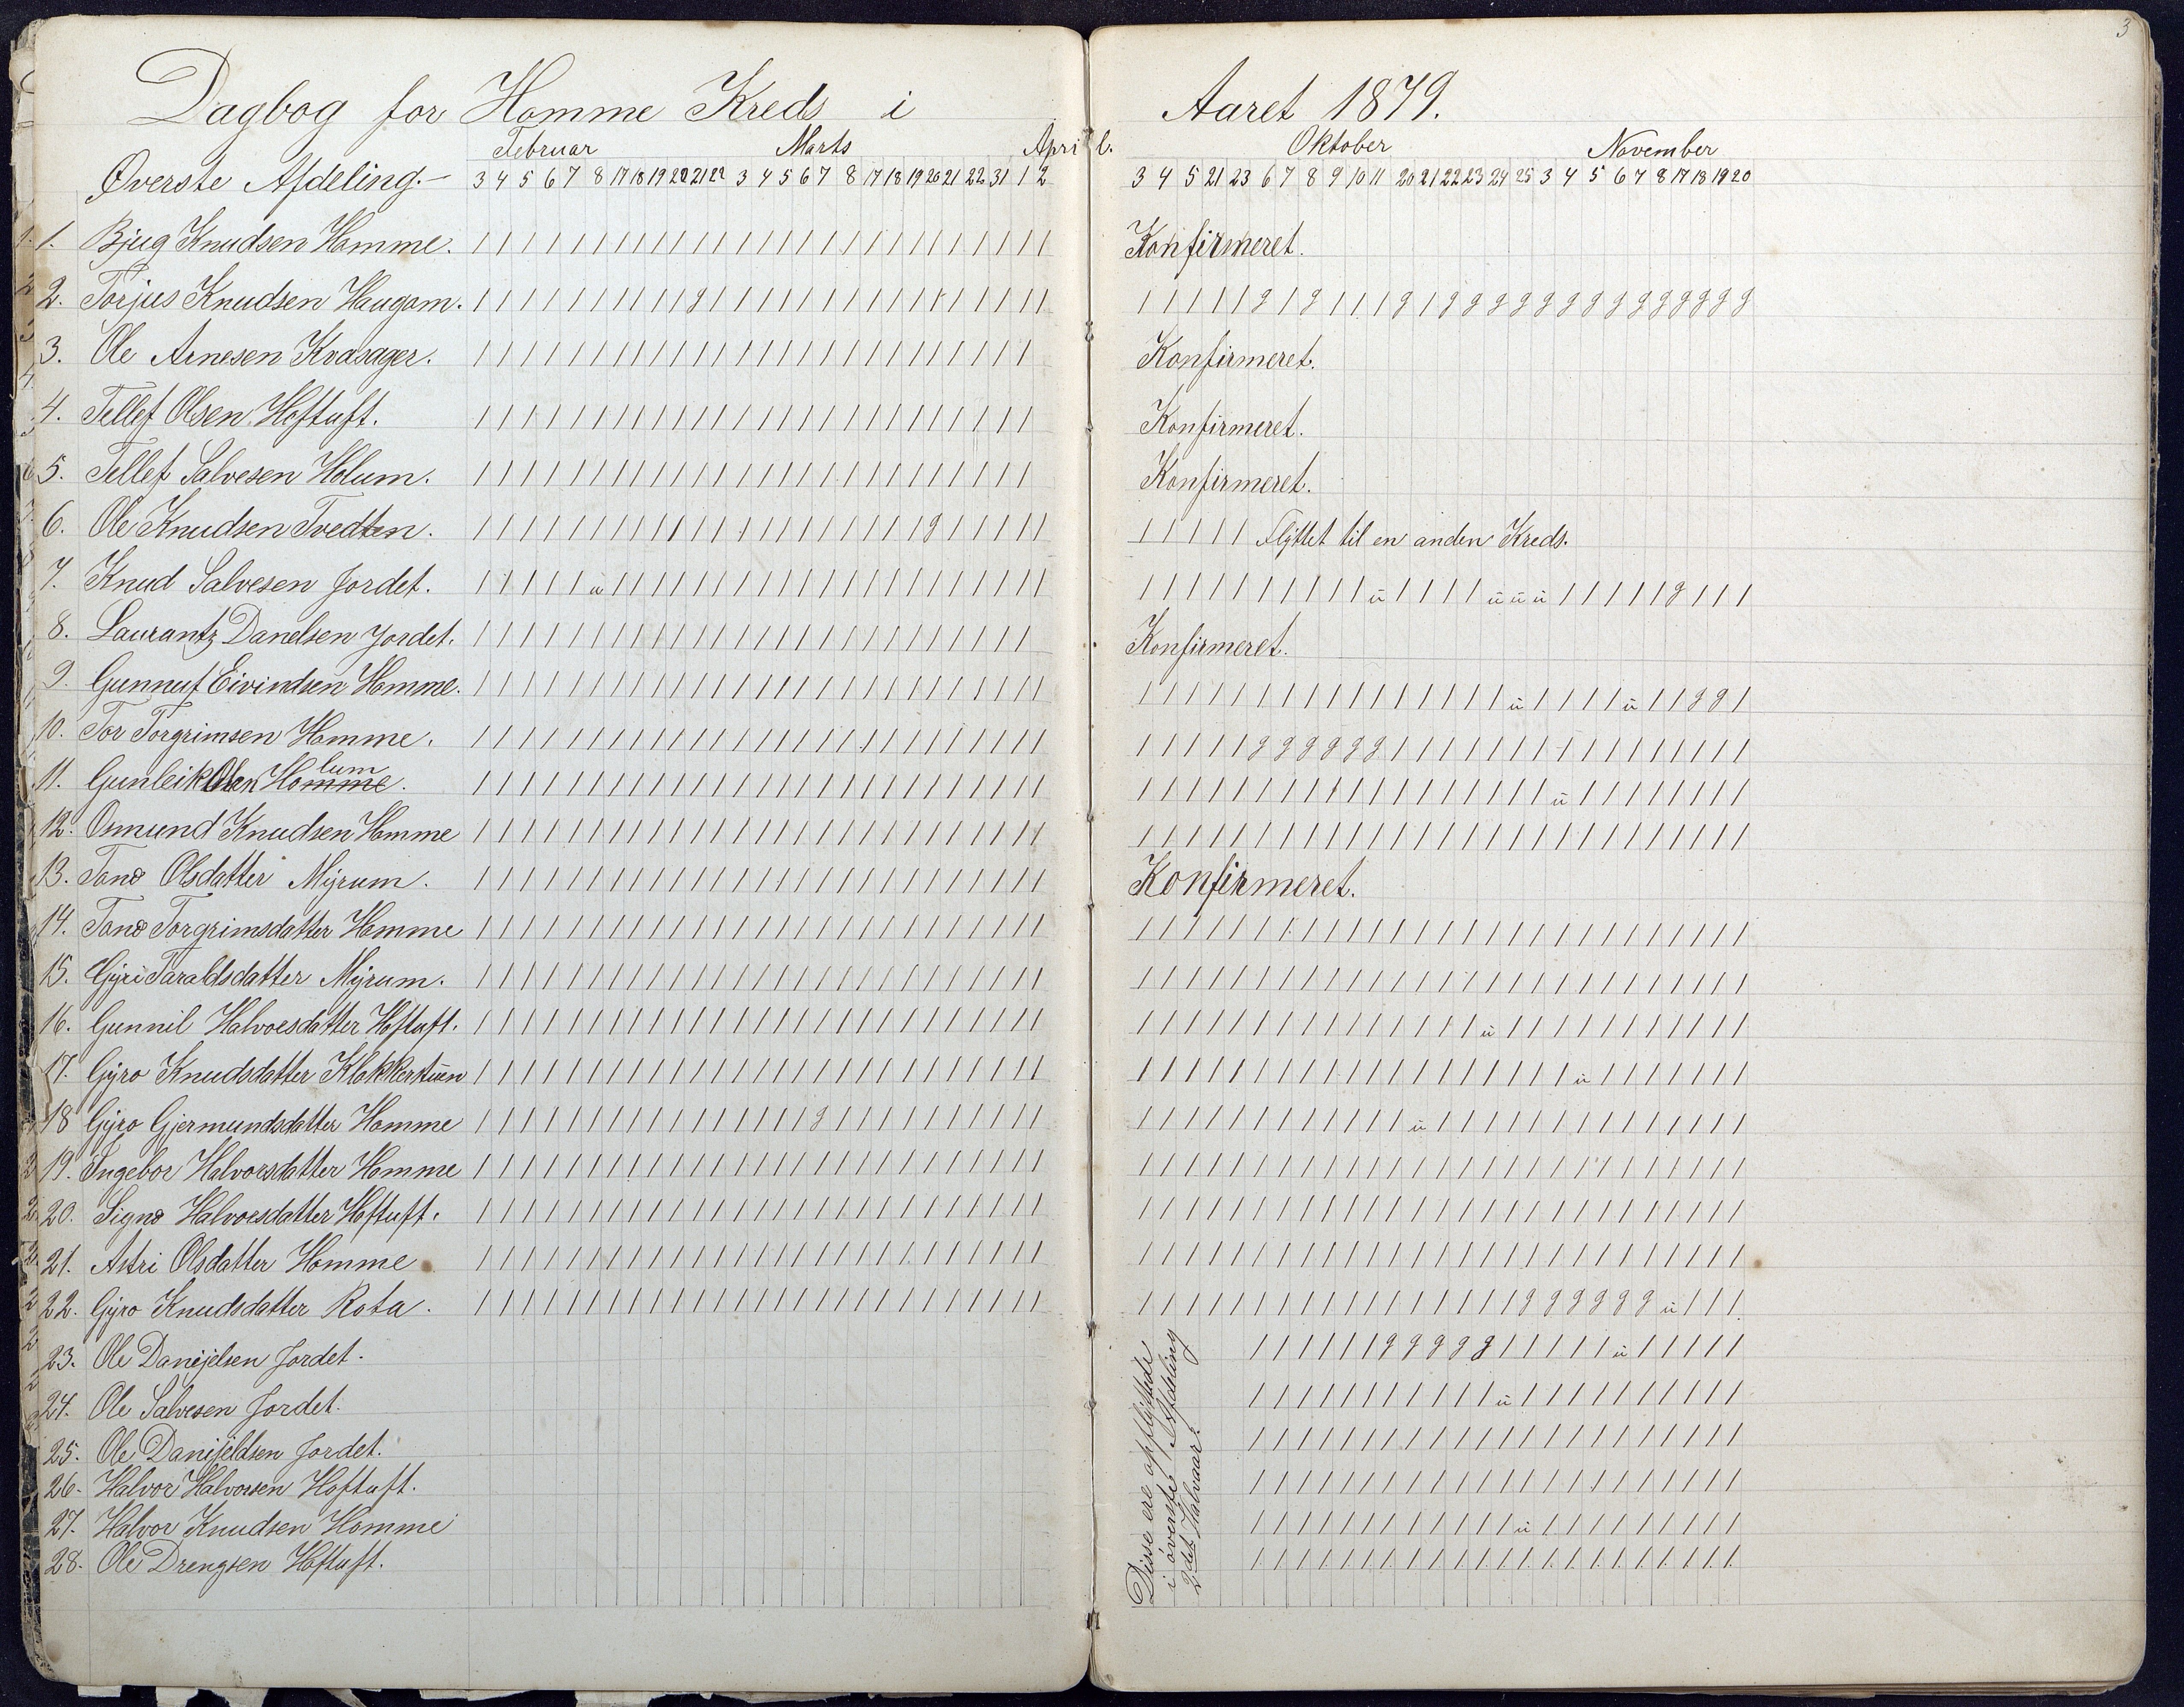 3
Dagbog for Homme Kreds i Aaret 1879.
Februar Marts April. Oktober November
Øverste Afdeling.- 3 4 5 6 7 8 17 18 19 20 21 22 3 4 5 6 7 8 17 18 19 20 21 22 31 1 2 3 4 5 21 23 6 7 8 9 10 11 20 21 22 23 24 25 3 4 5 6 7 8 17 18 19 20
1. Bjug Knudsen Homme. Konfirmeret.
2. Torjus Knudsen Haugom.
3. Ole Arnesen Kvasager. Konfirmeret.
4. Tellef Olsen Hoftuft. Konfirmeret.
5. Tellef Salvesen Holum. Konfirmeret.
6. Ole Knudsen Tvedten. Flÿttet til en anden Kreds.
7. Knud Salvesen Jordet.
8. Laurantz Danelsen Jordet. Konfirmeret.
9. Gunnuf Eivindsen Homme.
10. Tor Torgrimsen Homme.
11. Gunleik Olsen Homme. lum
12. Osmund Knudsen Homme
13. Tone Olsdatter Mÿrum. Konfirmeret.
14. Tone Torgrimsdatter Homme
15. Gÿri Taraldsdatter Mÿrum.
16. Gunnil Halvorsdatter Hoftuft.
17. Gÿro Knudsdatter Klokkerstuen
18 Gÿro Gjermundsdatter Homme
19. Ingebor Halvorsdatter Homme
20. Signe Halvorsdatter Hoftuft.
21. Astri Olsdatter Homme
22. Gÿro Knudsdatter Rota.
23. Ole Danijelsen Jordet.
24. Ole Salvesen Jordet.
25. Ole Danijeldsen Jordet.
26. Halvor Halvorsen Hoftuft.
27. Halvor Knudsen Homme
28. Ole Drengsen Hoftuft.
Disse ere opflÿttede
i øverste Afdeling
2det Halvaar.